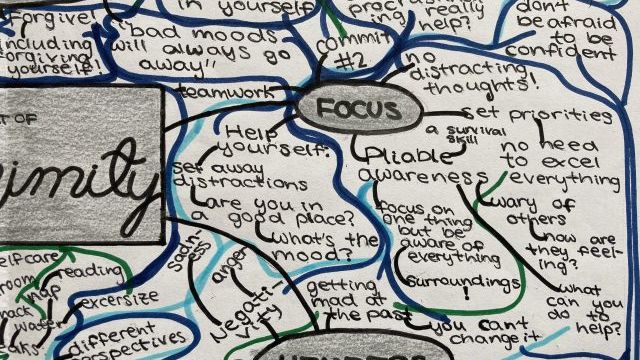 Forgive
including
forgiving
yourself!
in yourself
"bad moods
will always go
away"
commit
#2
really
help?
don't
be afraid
to be
confident
no
distracting
thoughts!
teamwork
FOCUS
set priorities
a survival
skill
OF
imity
Help
yourself!
Pliable
awareness
no need
to excel
everything
set away
distractions
are you in
a good place?
what's the
mood?
focus on
one thing
but be
aware of
everything
surroundings
wary of
others
how are
they feel-
ing?
what
can you
do to
help?
self care
reading
room
nap
snack
water
excersize
different
perspectives
sadness
anger
Negati-
vity
getting
mad at
the past
you can't
change it